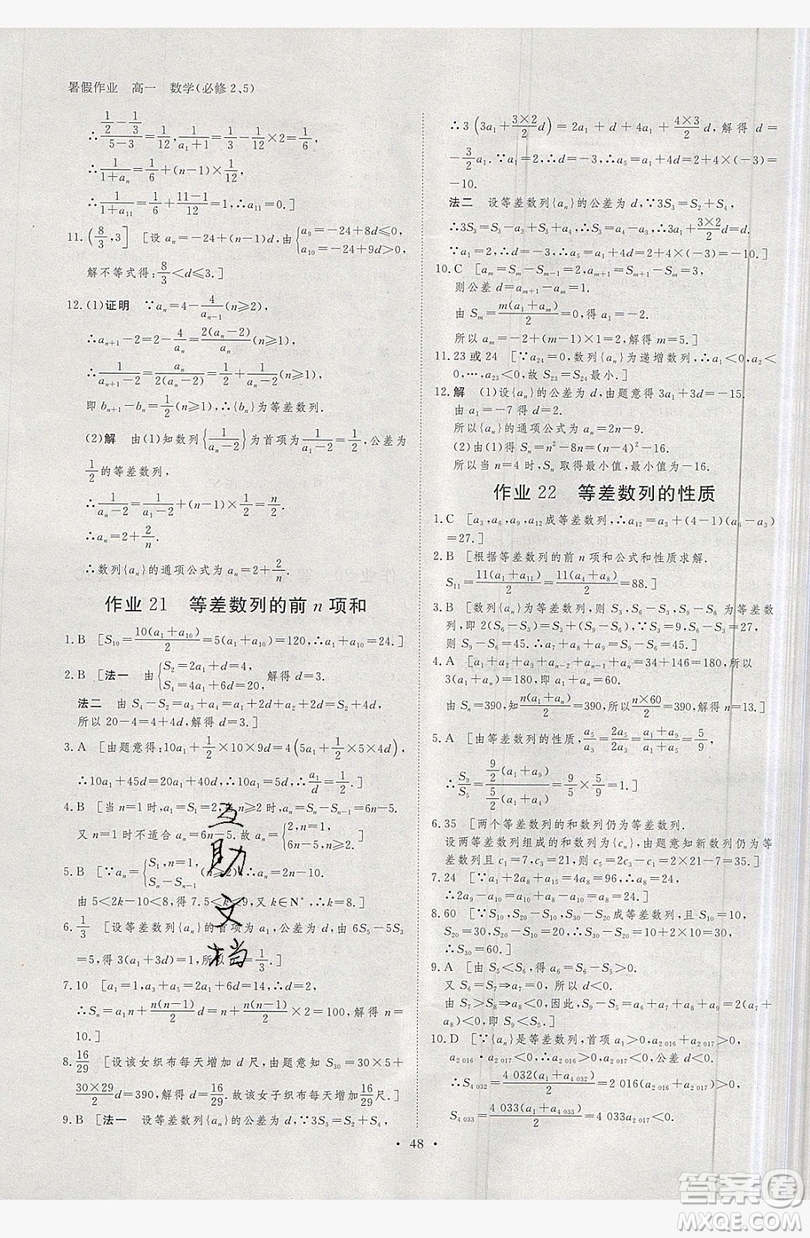 暑假作业 高一 数学(必修2、5)
∴(1/2-1/3)/(5-3)=1/12,∴1/(1+aₙ)=1/3-1/12=1/6,
∴1/(1+aₙ)=1/6+(n-1)×1/12,
∴1/(1+a₁₁)=1/6+(11-1)/12=1.]
11.(8/3,3] [设aₙ=-24+(n-1)d,由{a₉=-24+8d≤0 a₁₀=-24+9d>0,
解不等式得:8/3<d≤3.]
12.(1)证明 ∵aₙ=4-4/aₙ₋₁(n≥2),
∴aₙ₊₁-2=2-4/aₙ=2(aₙ-2)/aₙ(n≥1).
即bₙ₊₁-bₙ=1/2(n≥1).∴{bₙ}为等差数列.
(2)解 由(1)知数列{1/(aₙ-2)}是首项为1/(a₁-2)=1/2,公差为
1/2的等差数列.
∴数列{aₙ}的通项公式为aₙ=2+2/n.
作业21 等差数列的前n项和
1.B [S₁₀=10(a₁+a₁₀)/2=5(a₁+a₁₀)=120,∴a₁+a₁₀=24.]
2.B [法一 由{S₂=2a₁+d=4 S₄=4a₁+6d=20,解得d=3.
法二 由S₄-S₂=a₃+a₄=a₁+2d+a₂+2d=S₂+4d,
所以20-4=4+4d,解得d=3.]
3.A [由题意得:10a₁+1/2×10×9d=4(5a₁+1/2×5×4d),
∴10a₁+45d=20a₁+40d,∴10a₁=5d,∴a₁/d=1/2.]
4.B [当n=1时,a₁=S₁=2,当n≥2时,aₙ=Sₙ-Sₙ₋₁=6n-5.
又n=1时不适合aₙ=6n-5.故aₙ={2,n=1, 6n-5,n≥2.]
5.B
由5<2k-10<8,得7.5<k<9,又k∈N*,∴k=8.]
6.1/3 [设等差数列{aₙ}的首项为a₁,公差为d,由6S₅-5S₃
=5,得3(a₁+3d)=1,所以a₄=1/3.]
7.10 [a₁=1,a₃+a₅=2a₁+6d=14,∴d=2,
∴Sₙ=n+n(n-1)/2×2=100.解得n=
10.]
8.16/29 [设该女织布每天增加d尺,由题意知S₃₀=30×5+
30×29/2 d=390,解得d=16/29.故该女子织布每天增加16/29尺.]
9.B [法一 设等差数列{aₙ}的公差为d,∵3S₃=S₂+S₄,
∴3(3a₁+3×2/2 d)=2a₁+d+4a₁+4×3/2 d,解得d=
-3/2 a₁,∵a₁=2,∴d=-3,∴a₅=a₁+4d=2+4×(-3)=
-10.
法二 设等差数列{aₙ}的公差为d,∵3S₃=S₂+S₄,
∴3S₃=S₃-a₃+S₃+a₄,∴S₃=a₄-a₃,∴3a₁+3×2/2 d=d,
∵a₁=2,∴d=-3,∴a₅=a₁+4d=2+4×(-3)=-10.]
10.C [aₘ=Sₘ-Sₘ₋₁=2,aₘ₊₁=Sₘ₊₁-Sₘ=3,
则公差d=aₘ₊₁-aₘ=1.
由Sₘ=m(a₁+aₘ)/2=0及aₘ=2,得a₁=-2.
所以aₘ=-2+(m-1)×1=2.解得m=5.]
11.23或24 [∵a₂₄=0,数列{aₙ}为递增数列,∴a₁<0,
…,a₂₃<0.故S₂₃=S₂₄最小.]
12.解 (1)设{aₙ}的公差为d,由题意得3a₁+3d=-15.
由a₁=-7得d=2.
所以{aₙ}的通项公式为aₙ=2n-9.
(2)由(1)得Sₙ=n²-8n=(n-4)²-16.
所以当n=4时,Sₙ取得最小值,最小值为-16.
作业22 等差数列的性质
=27.]
2.B [根据等差数列的前n项和公式和性质求解.
S₁₁=11(a₁+a₁₁)/2=11(a₄+a₈)/2=88.]
3.B [数列{aₙ}为等差数列,则S₃,S₆-S₃,S₉-S₆为等差
数列,即2(S₆-S₃)=S₃+(S₉-S₆),∵S₃=9,S₆-S₃=27,
则S₉-S₆=45.∴a₇+a₈+a₉=S₉-S₆=45.]
4.A [a₁+a₂+a₃+aₙ₋₂+aₙ₋₁+aₙ=34+146=180,所以
3(a₁+aₙ)=180,从而a₁+aₙ=60.
由Sₙ=390,知n(a₁+aₙ)/2=390,即n×60/2=390,解得n=13.]
5.A [由等差数列的性质,a₅/a₃=2a₅/2a₃=(a₁+a₉)/(a₁+a₅)=5/9,
∴S₉/S₅=9/2(a₁+a₉)/5/2(a₁+a₅)=9/5×5/9=1.]
6.35 [两个等差数列的和数列仍为等差数列.
设两等差数列组成的和数列为{cₙ},由题意知新数列仍为等
差数列且c₁=7,c₃=21,则c₅=2c₃-c₁=2×21-7=35.]
8.60 [由S₁₀,S₂₀-S₁₀,S₃₀-S₂₀成等差数列,∴2(S₂₀-
S₁₀)=S₁₀+S₃₀-S₂₀.∴40=10+S₃₀-30.
∴S₃₀=60.]
9.A [由S₅>S₆,得a₆=S₆-S₅<0.
10.D [∵{aₙ}是等差数列,首项a₁>0,a₂₀₁₆+a₂₀₁₇>0,
a₂₀₁₆·a₂₀₁₇<0,∴a₂₀₁₆>0,a₂₀₁₇<0.
∴S₄₀₃₂=4 032(a₁+a₄₀₃₂)/2=2 016(a₂₀₁₆+a₂₀₁₇)>0,
S₄₀₃₃=4 033(a₁+a₄₀₃₃)/2=4 033a₂₀₁₇<0.]
互助文档
48
答案圈
MXQE.COM